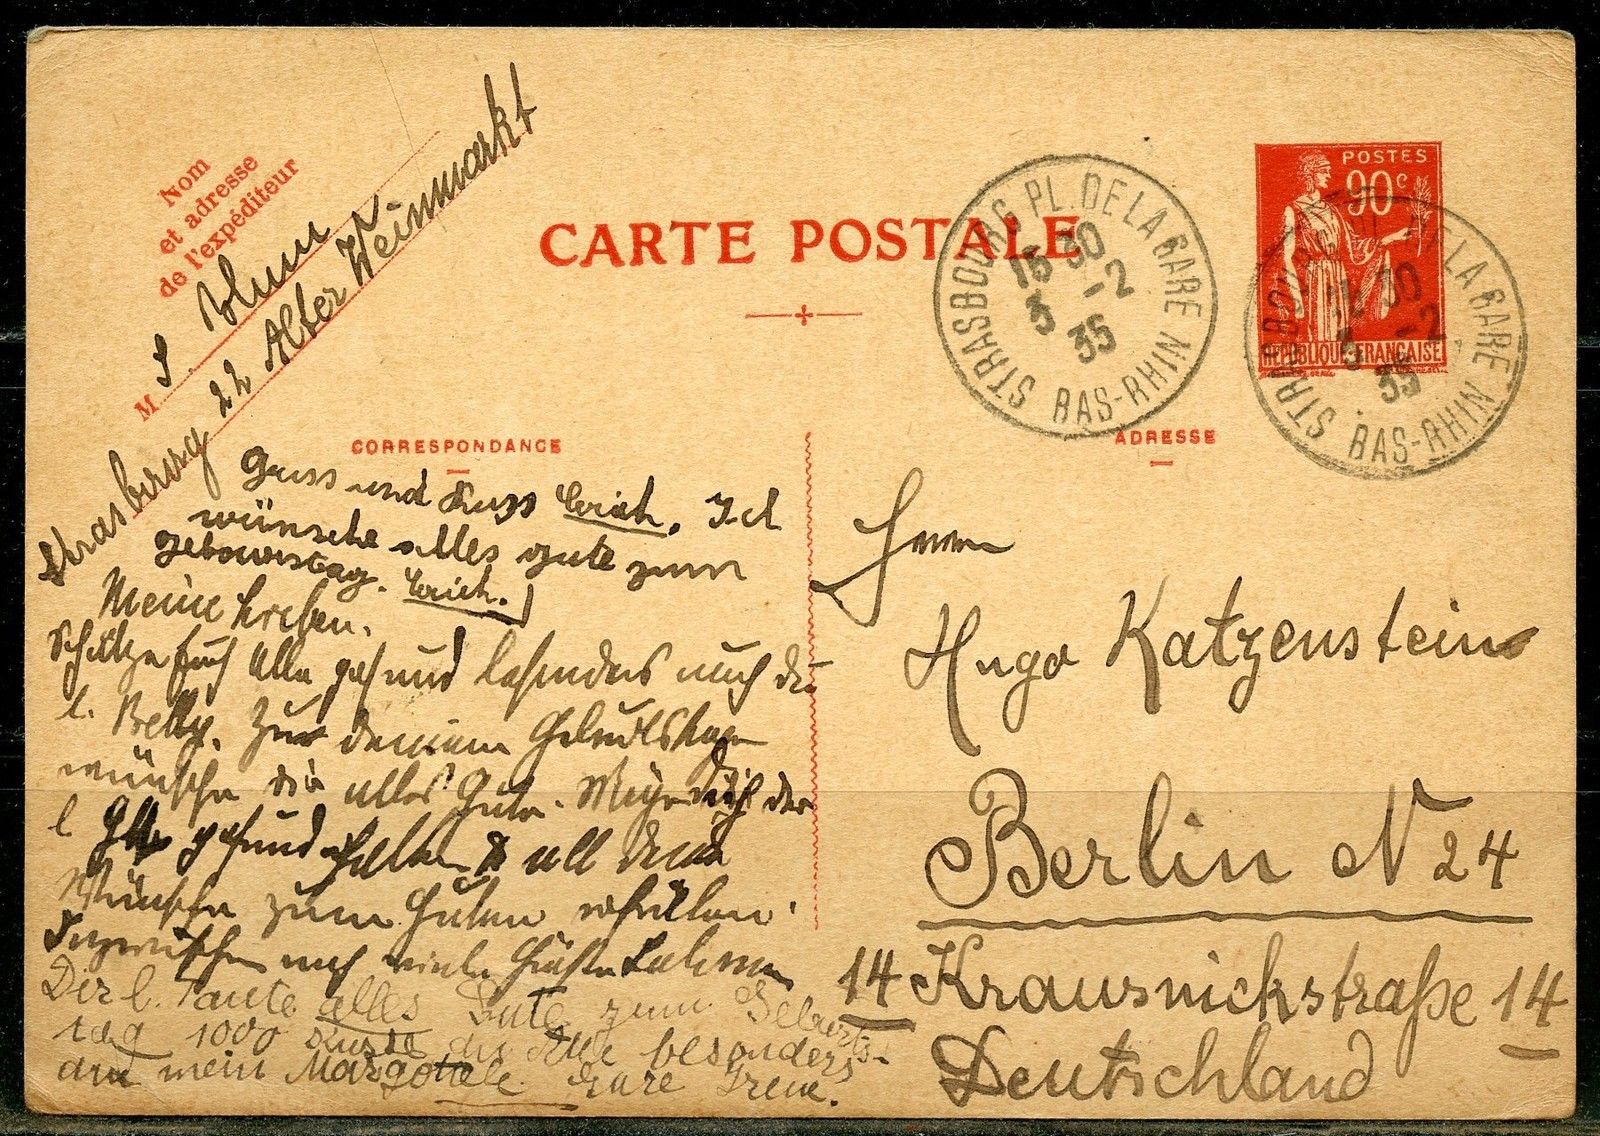 Nom
et adresse
de l'expéditeur
M. S. Blum
22 Alter Weinmarkt
Strasbourg
CARTE POSTALE
STRASBOURG PL. DE LA GARE
15 30
3 -2
35
BAS-RHIN
POSTES
90c
REPUBLIQUE FRANÇAISE
STRASBOURG PL. DE LA GARE
30
-2
35
BAS-RHIN
CORRESPONDANCE
Gruss und Kuss Erich. Ich
wünsche alles gute zum
gebourstag. Erich.
Meine Lieben.
Schätze Euch Alle gesund besonders auch die
l. Betty. Zum deinem Geburtstage
wünsche dir alles Gute. Möge dich der
l. gesund erhalten & all deine
Wünsche zum Guten erfüllen.
Inzwischen noch viele Grüße
Dir l. Tante alles Gute zum Geburts-
tag 1000 Küsse an Alle besonders
an mein Margotele. Eure Irene.
ADRESSE
Herrn
Hugo Katzenstein
Berlin N 24
14 Krausnickstraße 14
Deutschland